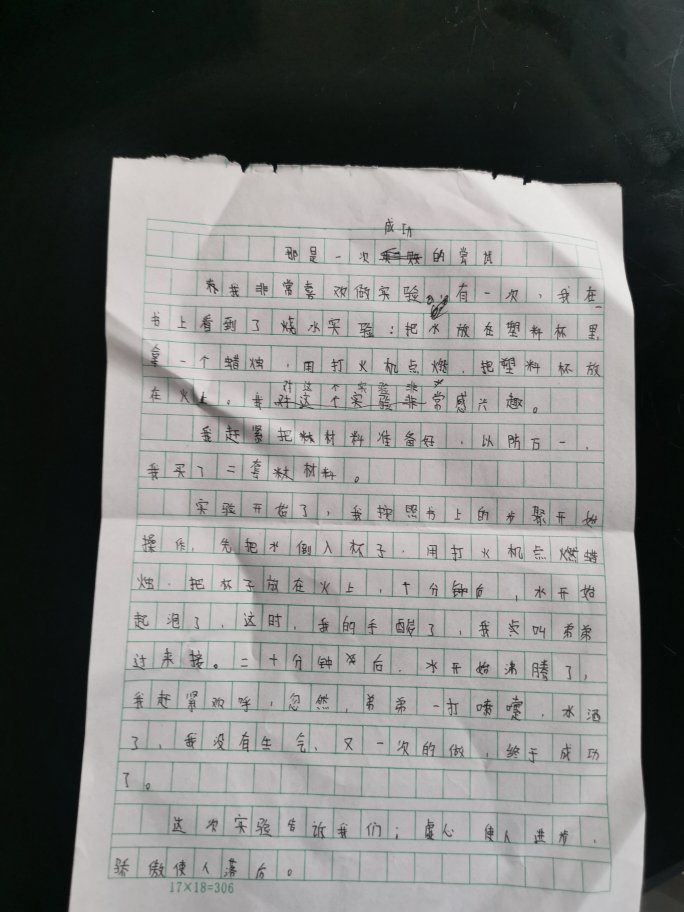 成功
那是一次的尝试
我非常喜欢做实验,有一次,我在
书上看到了烧水实验:把水放在塑料杯里
拿一个蜡烛,用打火机点燃,把塑料杯放
对这个实验非
在火上。我常感兴趣。
我赶紧把材料准备好,以防万一,
我买了二套材料。
实验开始了,我按照书上的步聚开始
操作,先把水倒入杯子,用打火机点燃蜡
烛,把杯子放在火上,十分钟后,水开始
起泡了,这时,我的手酸了,我叫弟弟
过来接。二十分钟后,水开始沸腾了,
我赶紧欢呼,忽然,弟弟一打喷嚏,水洒
了,我没有生气,又一次的做,终于成功
了。
这次实验告诉我们:虚心使人进步,
骄傲使人落后。
17×18=306